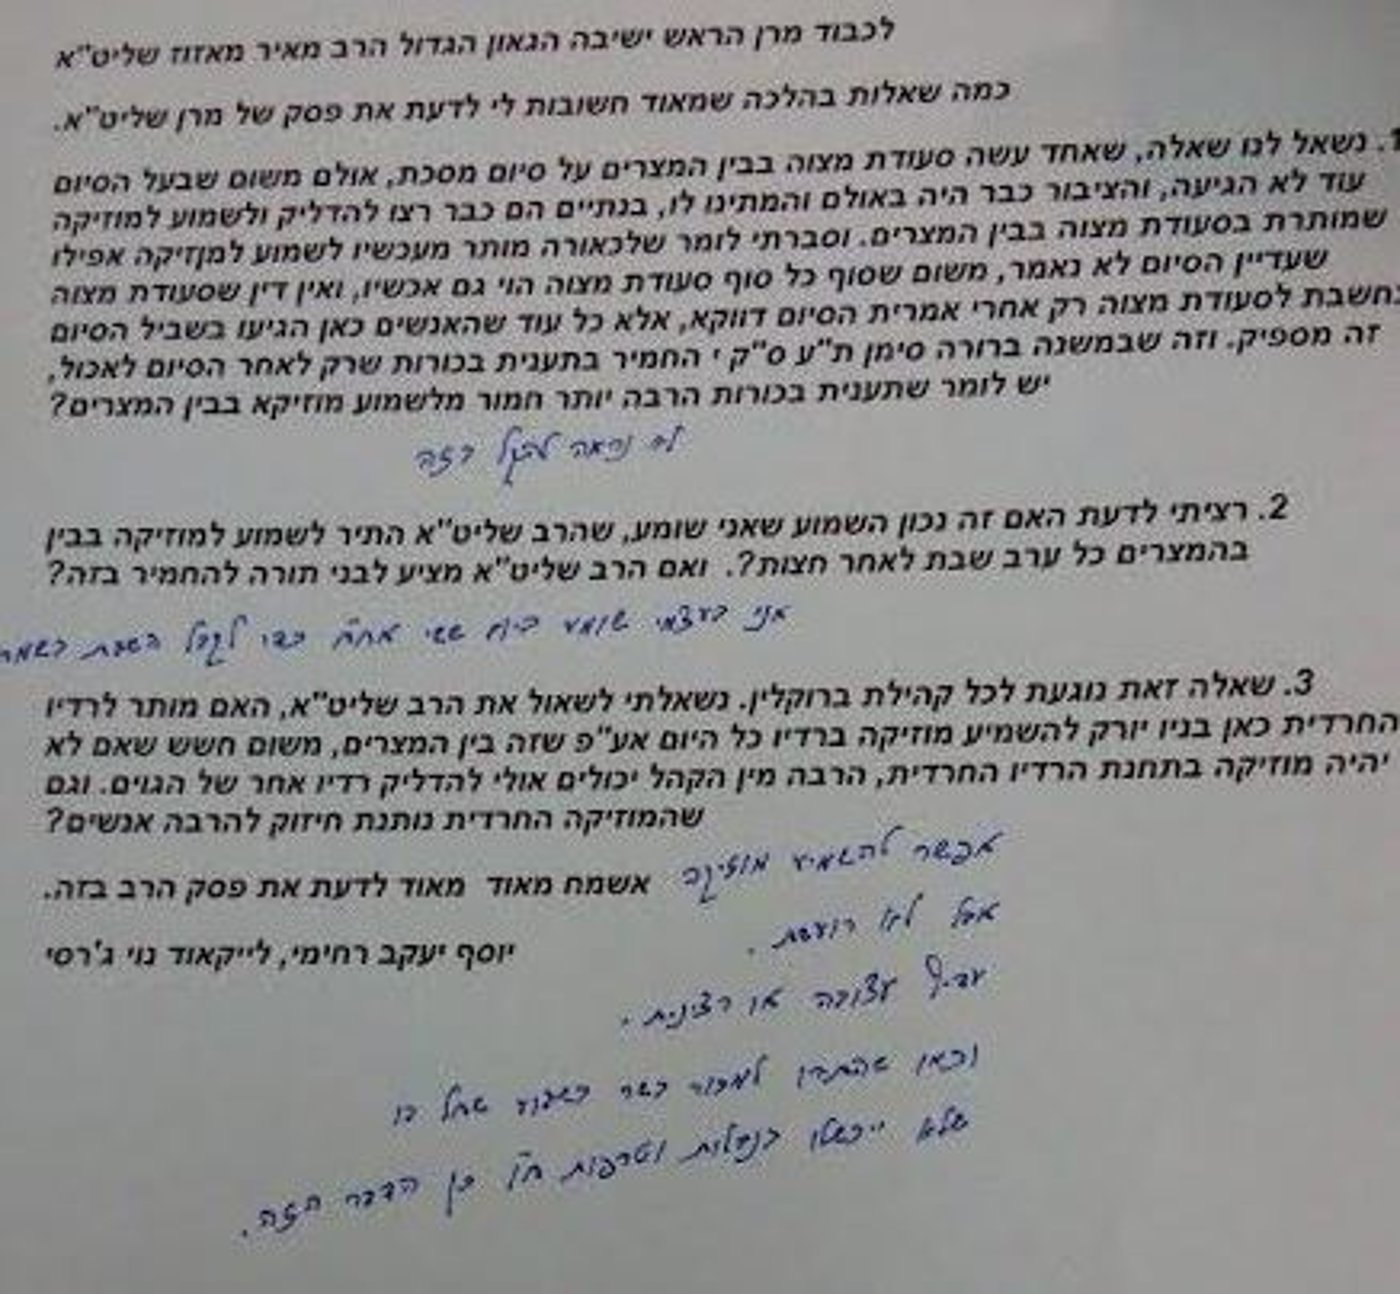 לכבוד מרן הראש ישיבה הגאון הגדול הרב מאיר מאזוז שליט"א
כמה שאלות בהלכה שמאוד חשובות לי לדעת את פסק של מרן שליט"א.
1. נשאל לנו שאלה, שאחד עשה סעודת מצוה בבין המצרים על סיום מסכת, אולם משום שבעל הסיום
עוד לא הגיעה, והציבור כבר היה באולם והמתינו לו, בנתיים הם כבר רצו להדליק ולשמוע למוזיקה
שמותרת בסעודת מצוה בבין המצרים. וסברתי לומר שלכאורה מותר מעכשיו לשמוע למןזיקה אפילו
שעדיין הסיום לא נאמר, משום שסוף כל סוף סעודת מצוה הוי גם אכשיו, ואין דין שסעודת מצוה
נחשבת לסעודת מצוה רק אחרי אמרית הסיום דווקא, אלא כל עוד שהאנשים כאן הגיעו בשביל הסיום
זה מספיק. וזה שבמשנה ברורה סימן ת"ע ס"ק י החמיר בתענית בכורות שרק לאחר הסיום לאכול,
יש לומר שתענית בכורות הרבה יותר חמור מלשמוע מוזיקא בבין המצרים?
לא נראה להקל בזה
2. רציתי לדעת האם זה נכון השמוע שאני שומע, שהרב שליט"א התיר לשמוע למוזיקה בבין
בהמצרים כל ערב שבת לאחר חצות?. ואם הרב שליט"א מציע לבני תורה להחמיר בזה?
אני בעצמי שומע ביום ששי אחה"צ כדי לקבל השבת בשמחה
3. שאלה זאת נוגעת לכל קהילת ברוקלין. נשאלתי לשאול את הרב שליט"א, האם מותר לרדיו
החרדית כאן בניו יורק להשמיע מוזיקה ברדיו כל היום אע"פ שזה בין המצרים, משום חשש שאם לא
יהיה מוזיקה בתחנת הרדיו החרדית, הרבה מין הקהל יכולים אולי להדליק רדיו אחר של הגוים. וגם
שהמוזיקה החרדית נותנת חיזוק להרבה אנשים?
אפשר להשמיע מוזיקה
אשמח מאוד מאוד לדעת את פסק הרב בזה.
אבל לא רועשת.
יוסף יעקב רחימי, לייקאוד נוי ג'רסי
עדיף עצובה או רצינית.
וכאו שהתירו למכור בשר בשבוע שחל בו
שלא ייכשלו בנבלות וטרפות ח"ו כן הדבר הזה.